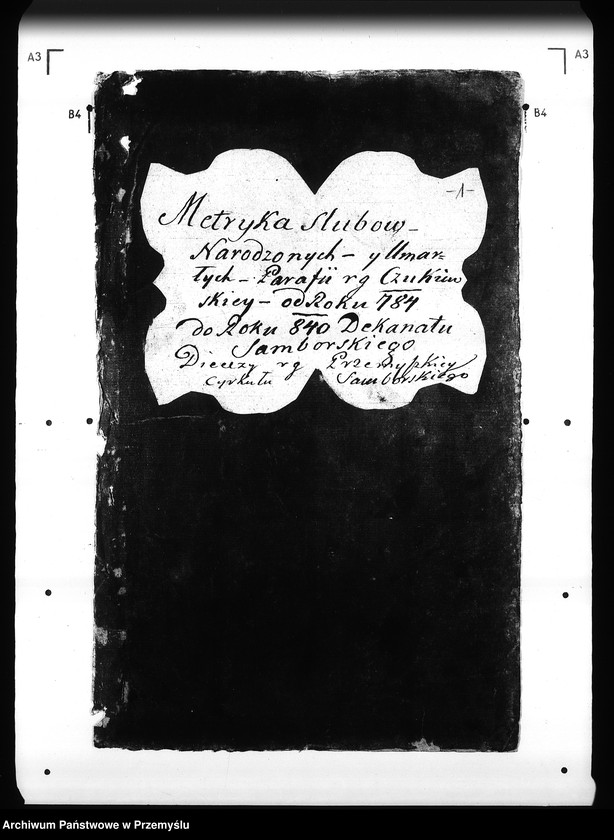 A3
A3
B4
B4
-1-
Metryka slubow-
Narodzonych - y Umar=
łych - Parafii rg Czukiew
skiey - od Roku 784
do Roku 840 Dekanatu
Samborskiego
Diecezy rg Przemyskiey
Cyrkułu Samborskiego
Archiwum Państwowe w Przemyślu